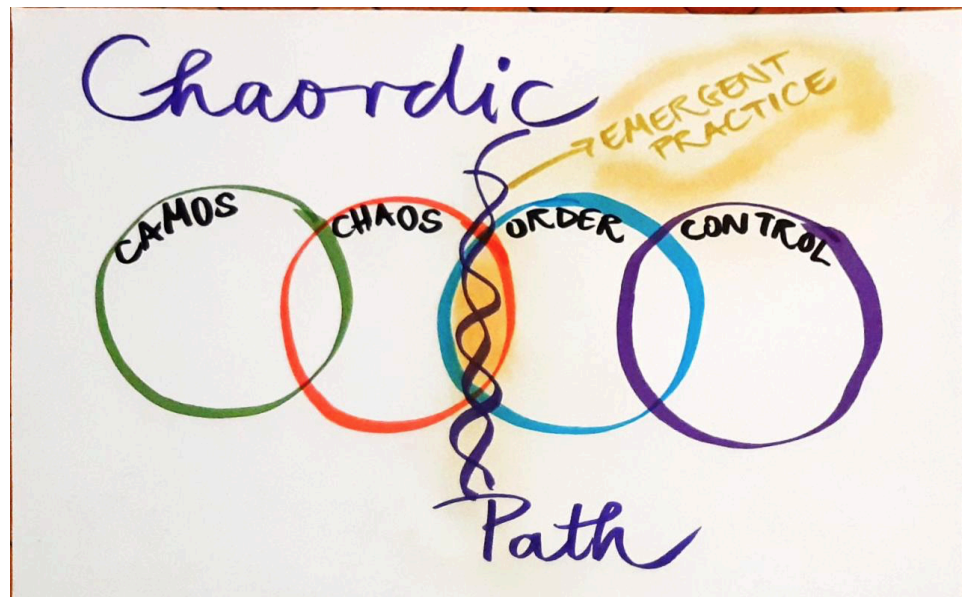 Chaordic
EMERGENT
PRACTICE
CAMOS
CHAOS
ORDER
CONTROL
Path